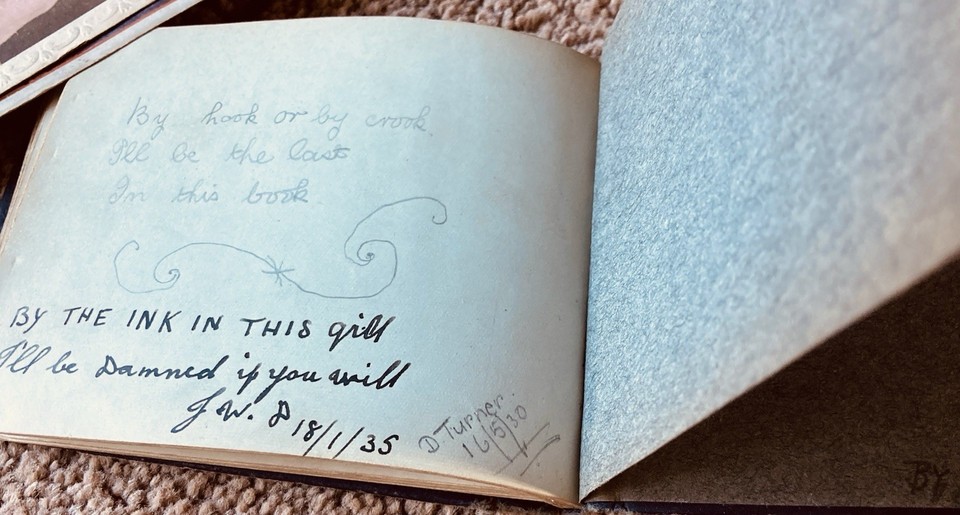 By hook or by crook.
I'll be the last
In this book
BY THE INK IN THIS qill
I'll be Damned if you will
J. W. D 18/1/35
D Turner.
16/5/30
BY